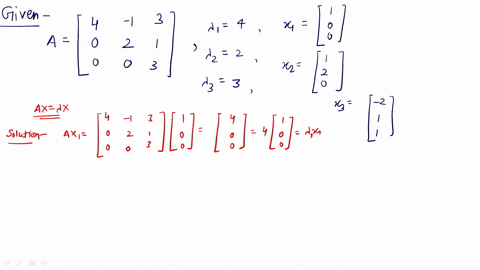 Given -
A = [ 4 -1 3 ; 0 2 1 ; 0 0 3 ] , λ₁ = 4 , x₁ = [ 1 ; 0 ; 0 ]
λ₂ = 2 , x₂ = [ 1 ; 2 ; 0 ]
λ₃ = 3 , x₃ = [ -2 ; 1 ; 1 ]
AX = λX
Solution - AX₁ = [ 4 -1 3 ; 0 2 1 ; 0 0 3 ] [ 1 ; 0 ; 0 ] = [ 4 ; 0 ; 0 ] = 4 [ 1 ; 0 ; 0 ] = λ₁x₁